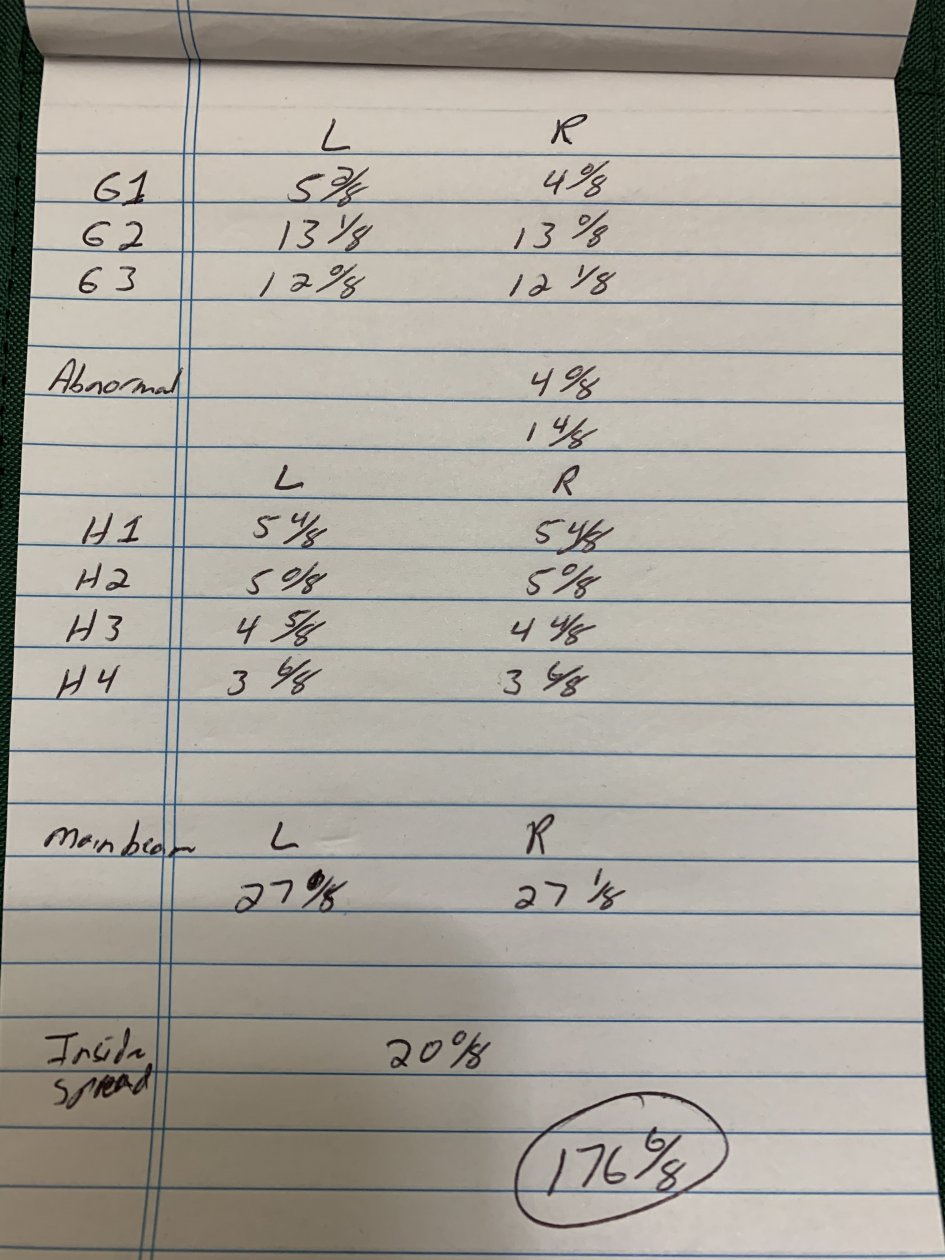 L R
G1 5 2/8 4 0/8
G2 13 1/8 13 0/8
G3 12 0/8 12 1/8
Abnormal 4 0/8
1 4/8
L R
H1 5 4/8 5 4/8
H2 5 0/8 5 0/8
H3 4 5/8 4 4/8
H4 3 6/8 3 6/8
Main beam L R
27 0/8 27 1/8
Inside 20 0/8
Spread
176 6/8